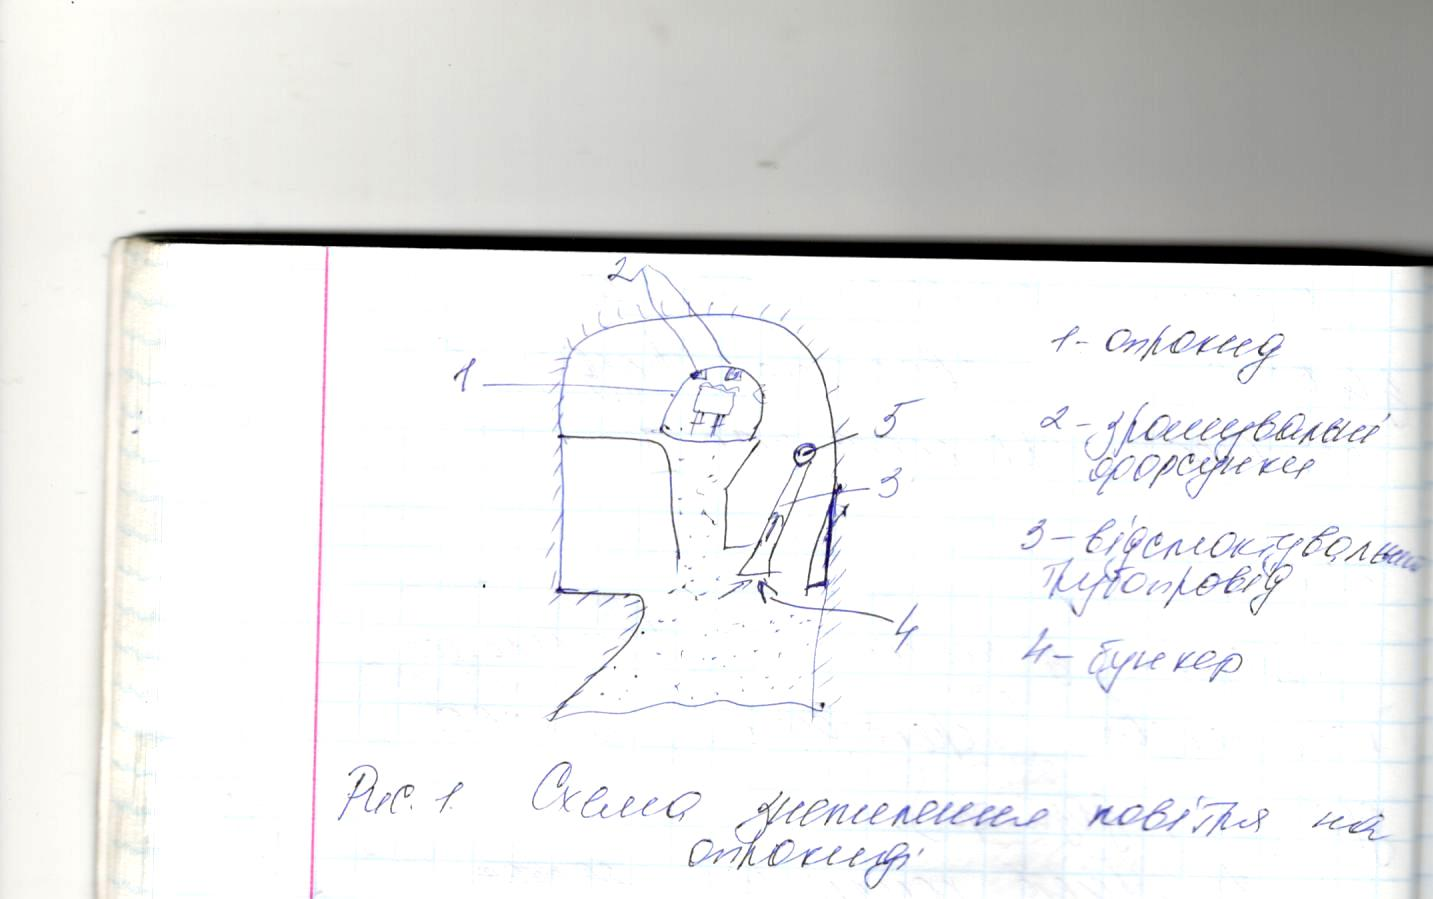 2
1
5
3
4
1- опрокид
2- зрошувальні
форсунки
3- відсмоктувальний
трубопровід
4- бункер
Рис. 1. Схема знепилення повітря на
опрокиді